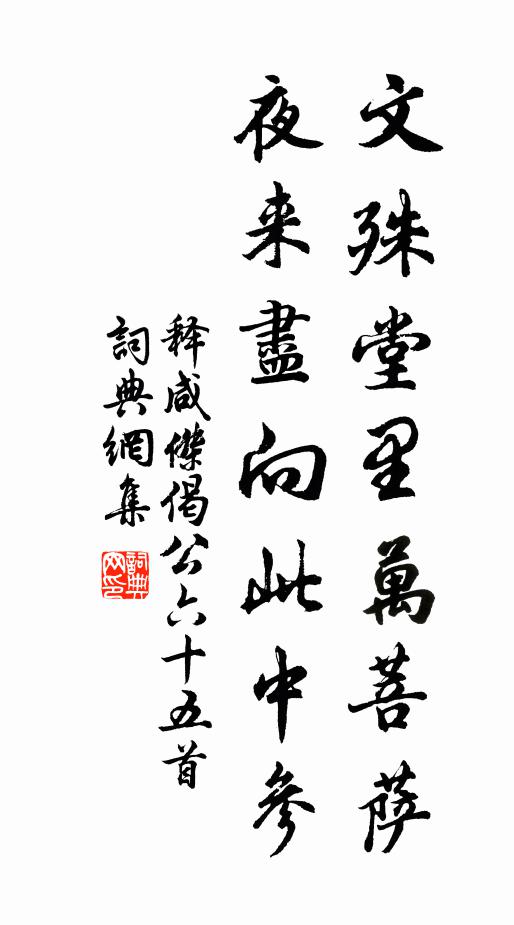 文殊堂里萬菩薩
夜来盡向此中參
释咸傑偈公六十五首
詞典網集
詞典網印